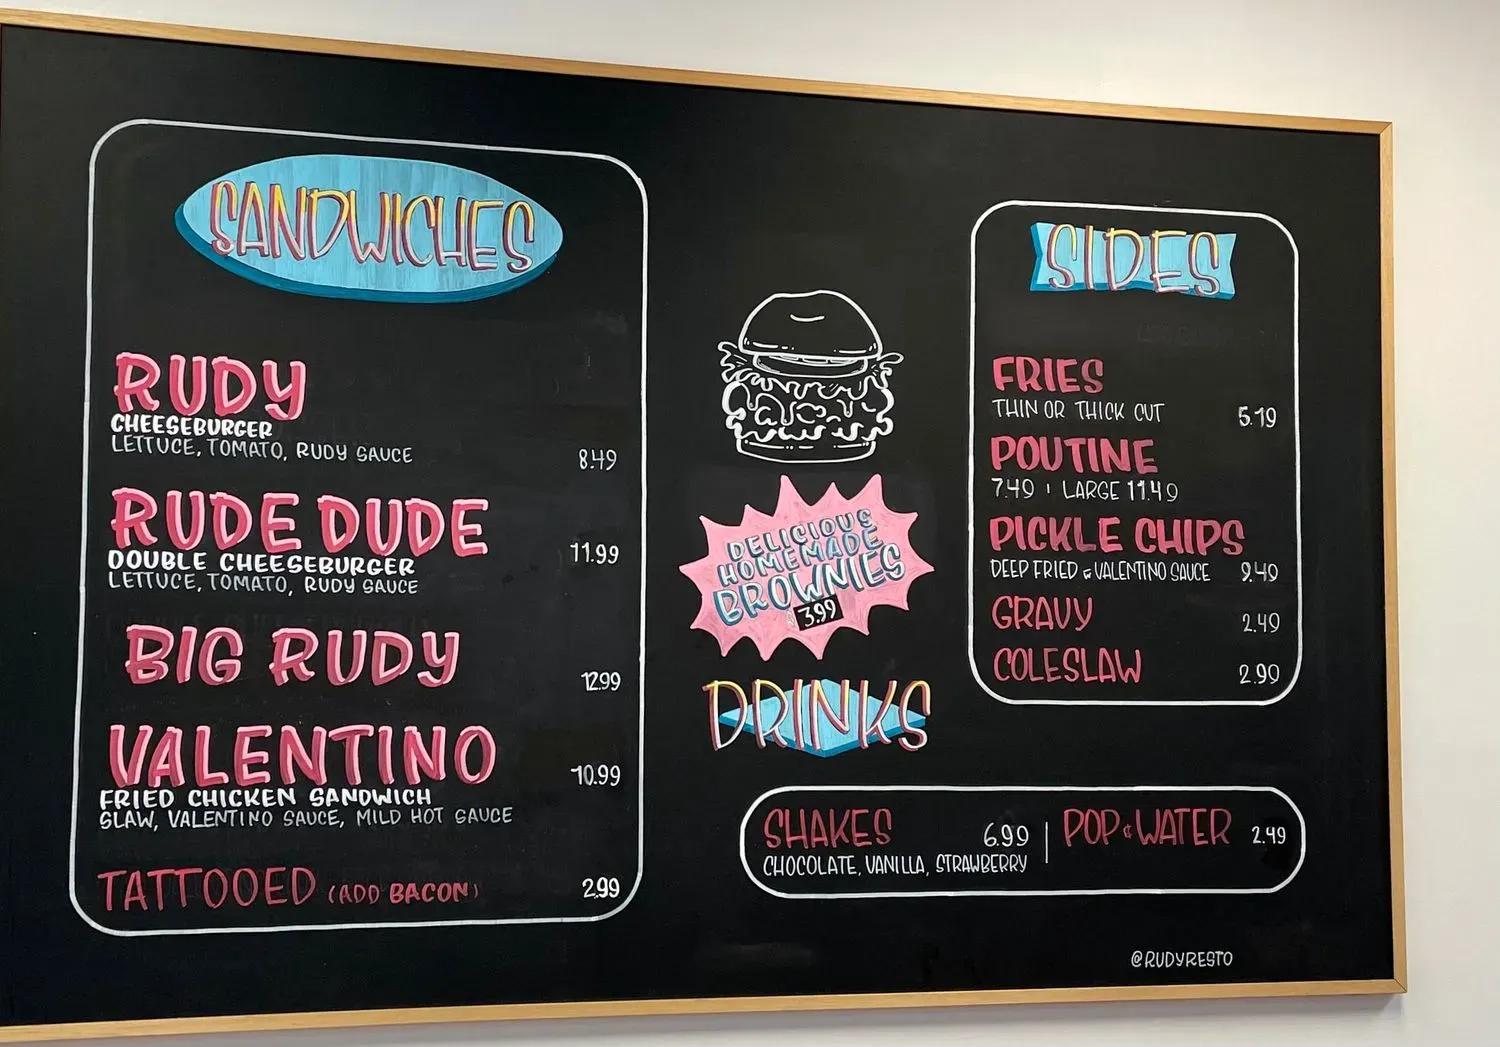 SANDWICHES
RUDY
CHEESEBURGER
LETTUCE, TOMATO, RUDY SAUCE 8.49
RUDE DUDE
DOUBLE CHEESEBURGER 11.99
LETTUCE, TOMATO, RUDY SAUCE
BIG RUDY 12.99
VALENTINO 10.99
FRIED CHICKEN SANDWICH
SLAW, VALENTINO SAUCE, MILD HOT SAUCE
TATTOOED (ADD BACON) 2.99
DELICIOUS
HOMEMADE
BROWNIES
3.99
SIDES
FRIES
THIN OR THICK CUT 5.19
POUTINE
7.49 | LARGE 11.49
PICKLE CHIPS
DEEP FRIED w VALENTINO SAUCE 9.49
GRAVY 2.49
COLESLAW 2.99
DRINKS
SHAKES 6.99 | POP & WATER 2.49
CHOCOLATE, VANILLA, STRAWBERRY
@RUDYRESTO